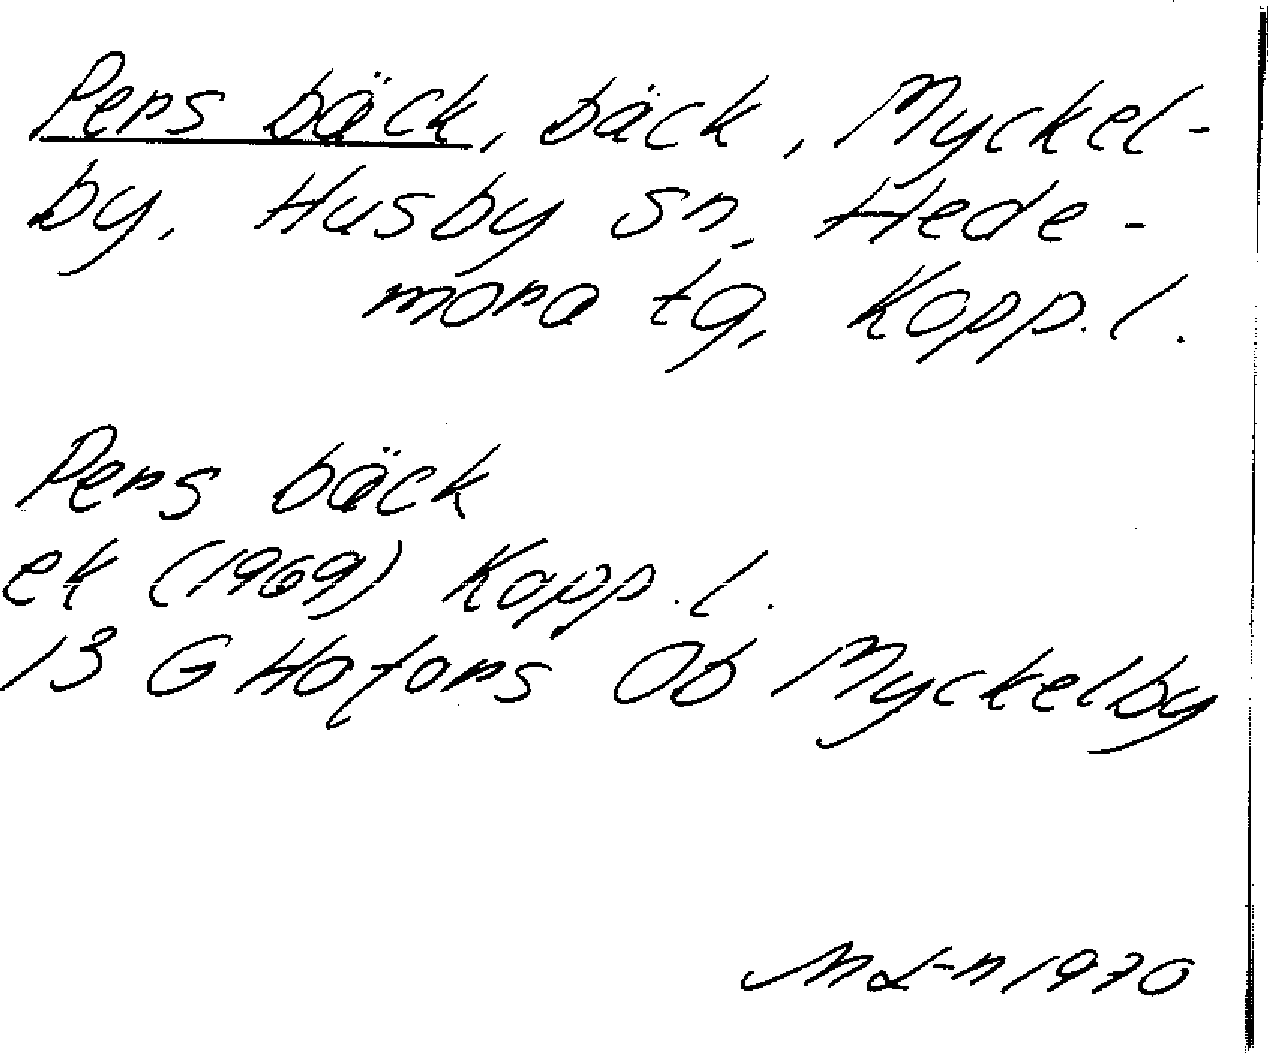 Pers bäck, bäck, Myckel-
by, Husby sn, Hede-
mora tg, Kopp.l.
Pers bäck
ek (1969) Kopp.l.
13 G Hofors Ob Myckelby
ML-n 1970